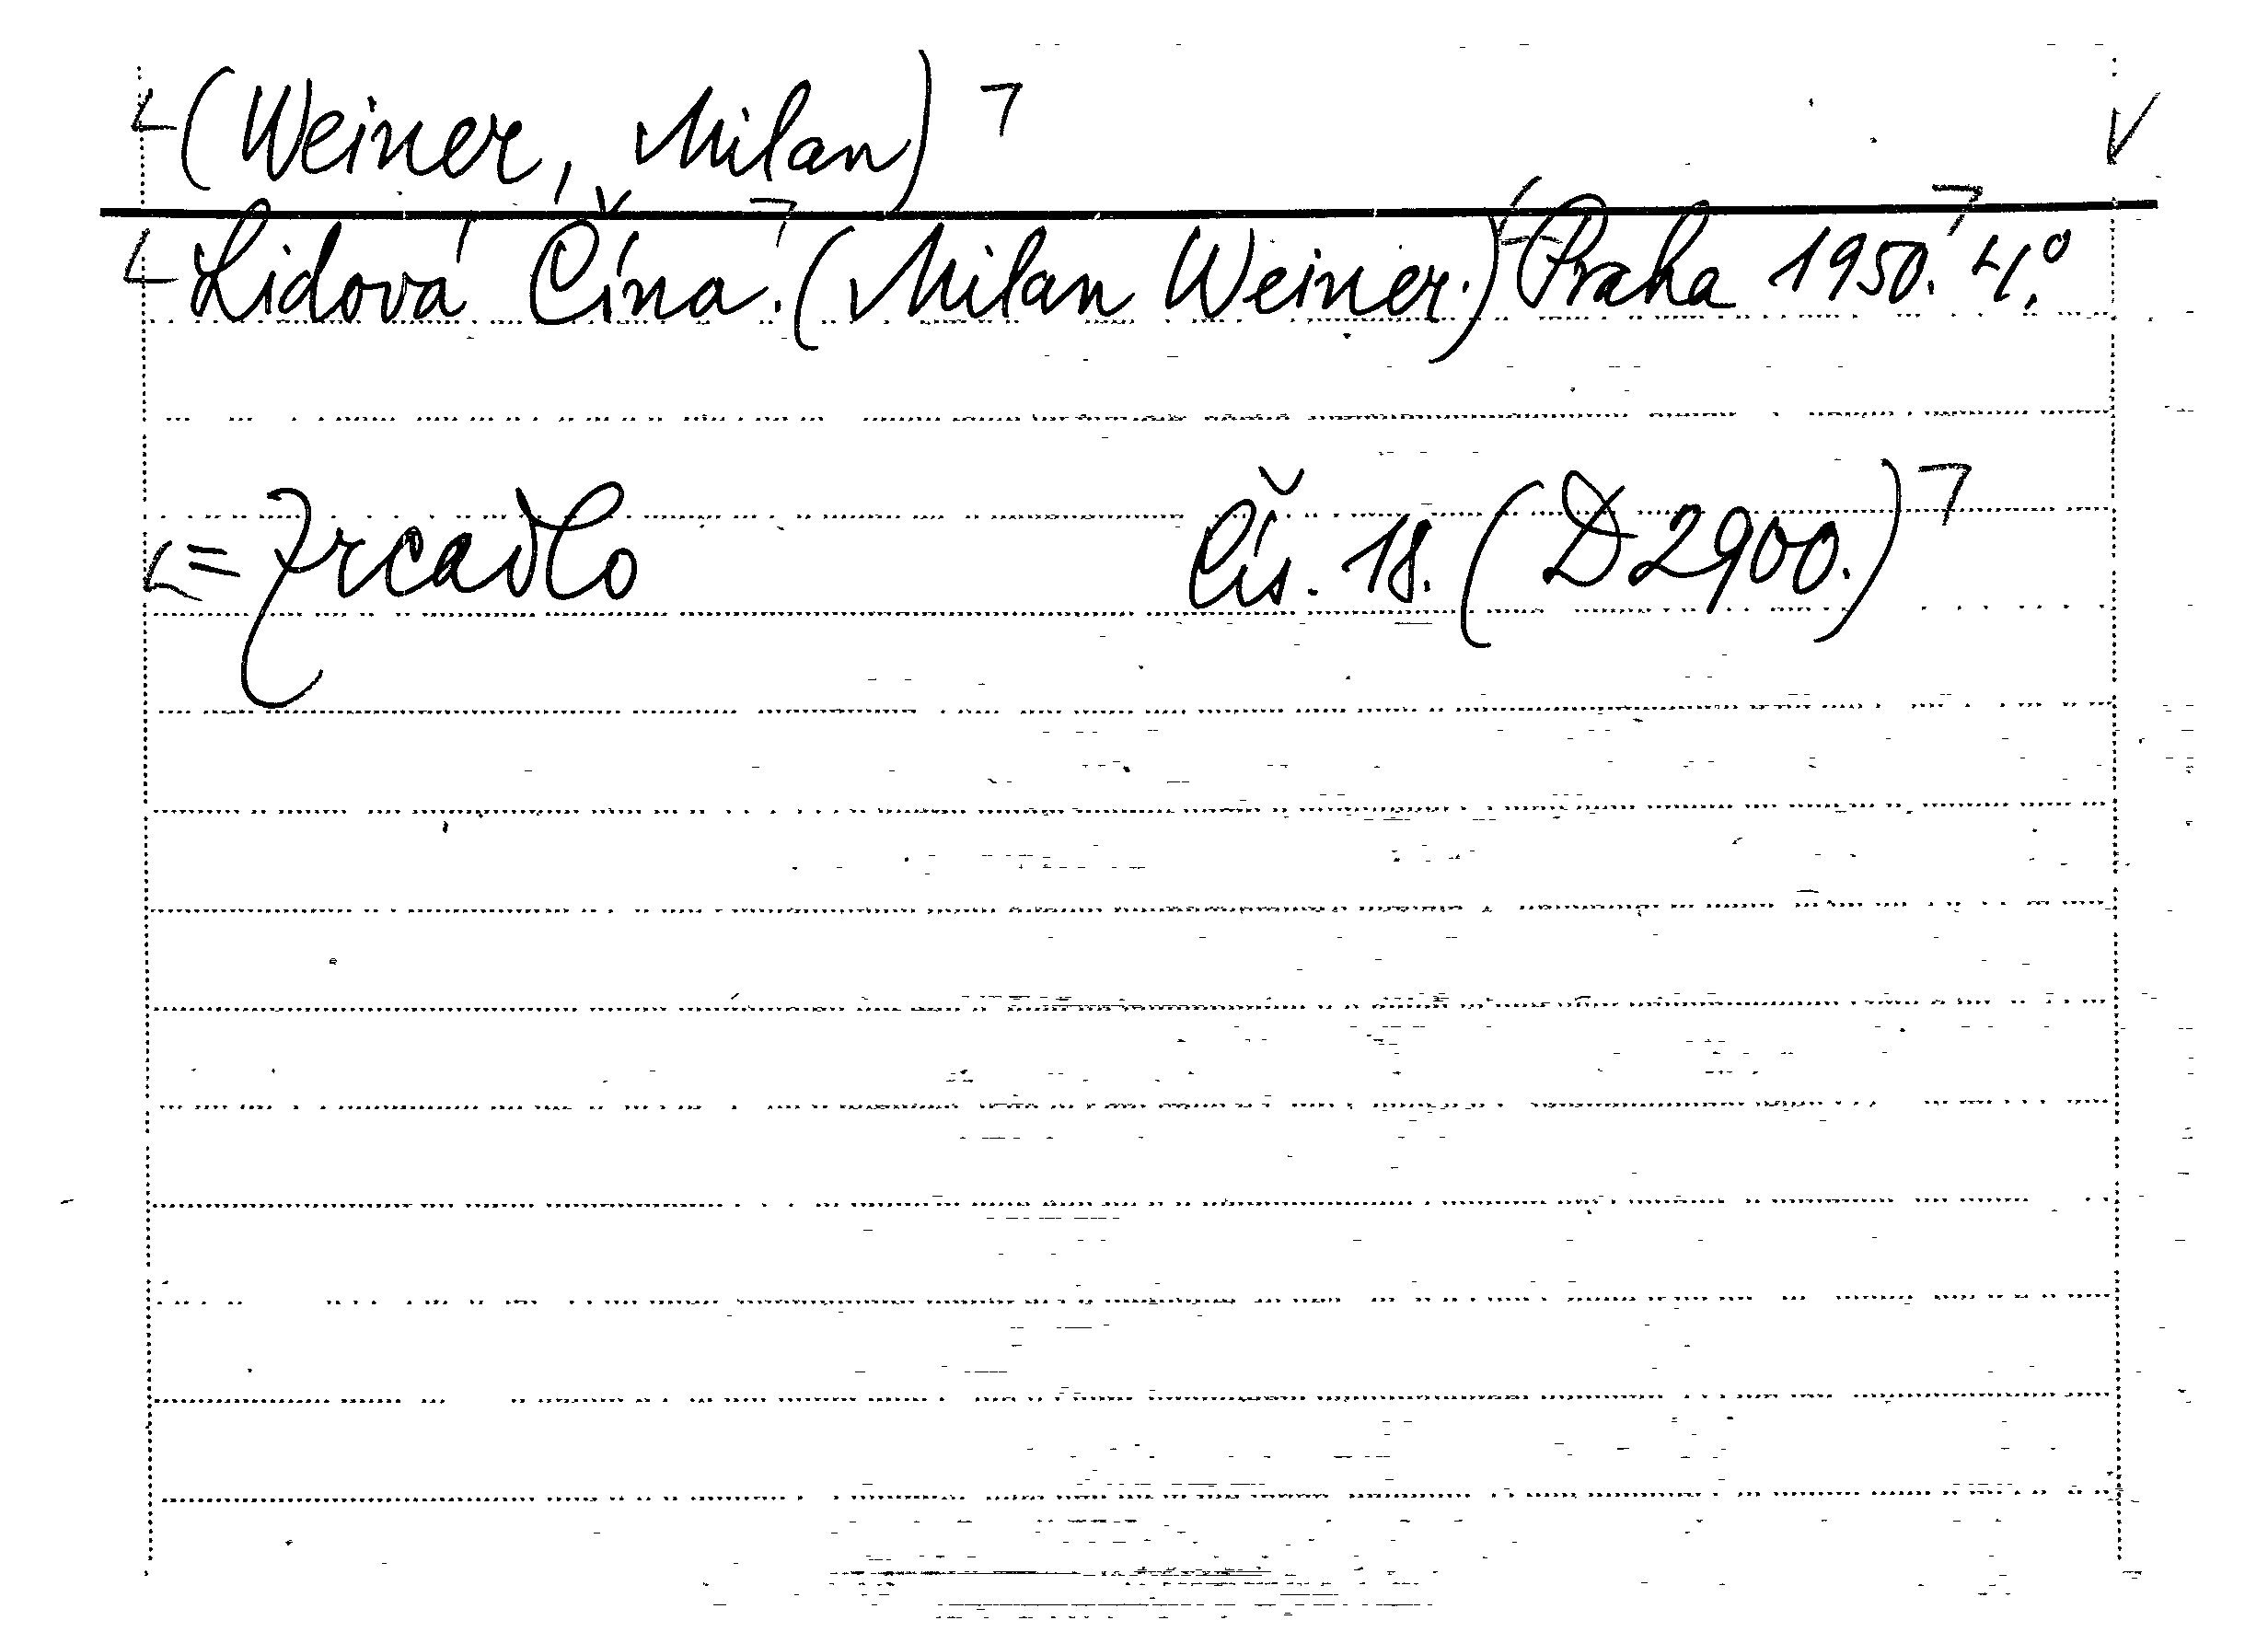 (Weiner, Milan)
Lidová Čína. (Milan Weiner.) Praha 1950. 4.°
= Zrcadlo Čís. 18. (D 2900.)